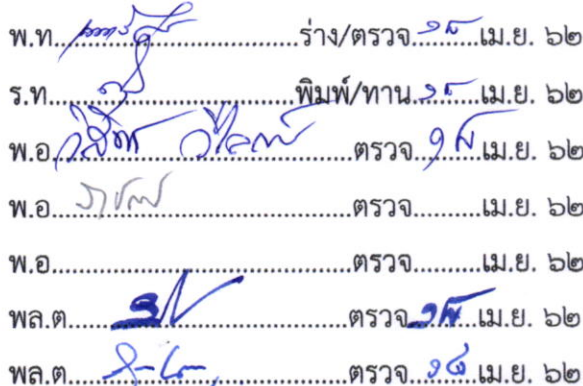 พ.ท.....................ร่าง/ตรวจ ๑๘ เม.ย. ๖๒
ร.ท.....................พิมพ์/ทาน ๑๘ เม.ย. ๖๒
พ.อ.....................ตรวจ ๑๘ เม.ย. ๖๒
พ.อ.....................ตรวจ.........เม.ย. ๖๒
พ.อ.....................ตรวจ.........เม.ย. ๖๒
พล.ต.....................ตรวจ ๑๘ เม.ย. ๖๒
พล.ต.....................ตรวจ ๑๘ เม.ย. ๖๒